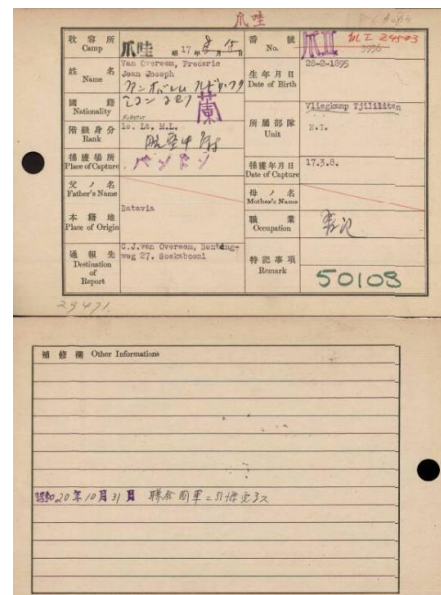 爪哇
收容所 Camp 爪哇 昭17年8月15日
番號 No. 爪II
姓名 Name Van Overeem, Frederic
Jean Joseph
生年月日 Date of Birth 28-2-1895
國籍 Nationality 蘭
階級身分 Rank
所屬部隊 Unit Vliegkamp Tjililitan
捕獲場所 Place of Capture バンドン
捕獲年月日 Date of Capture 17.3.8.
父ノ名 Father's Name
母ノ名 Mother's Name
本籍地 Place of Origin Batavia
職業 Occupation
通報先 Destination of Report
weg 27. Soekaboemi
特記事項 Remark
50108
29471
補修欄 Other Informations
昭和20年10月31日 聯合國軍ニ引渡完了ス